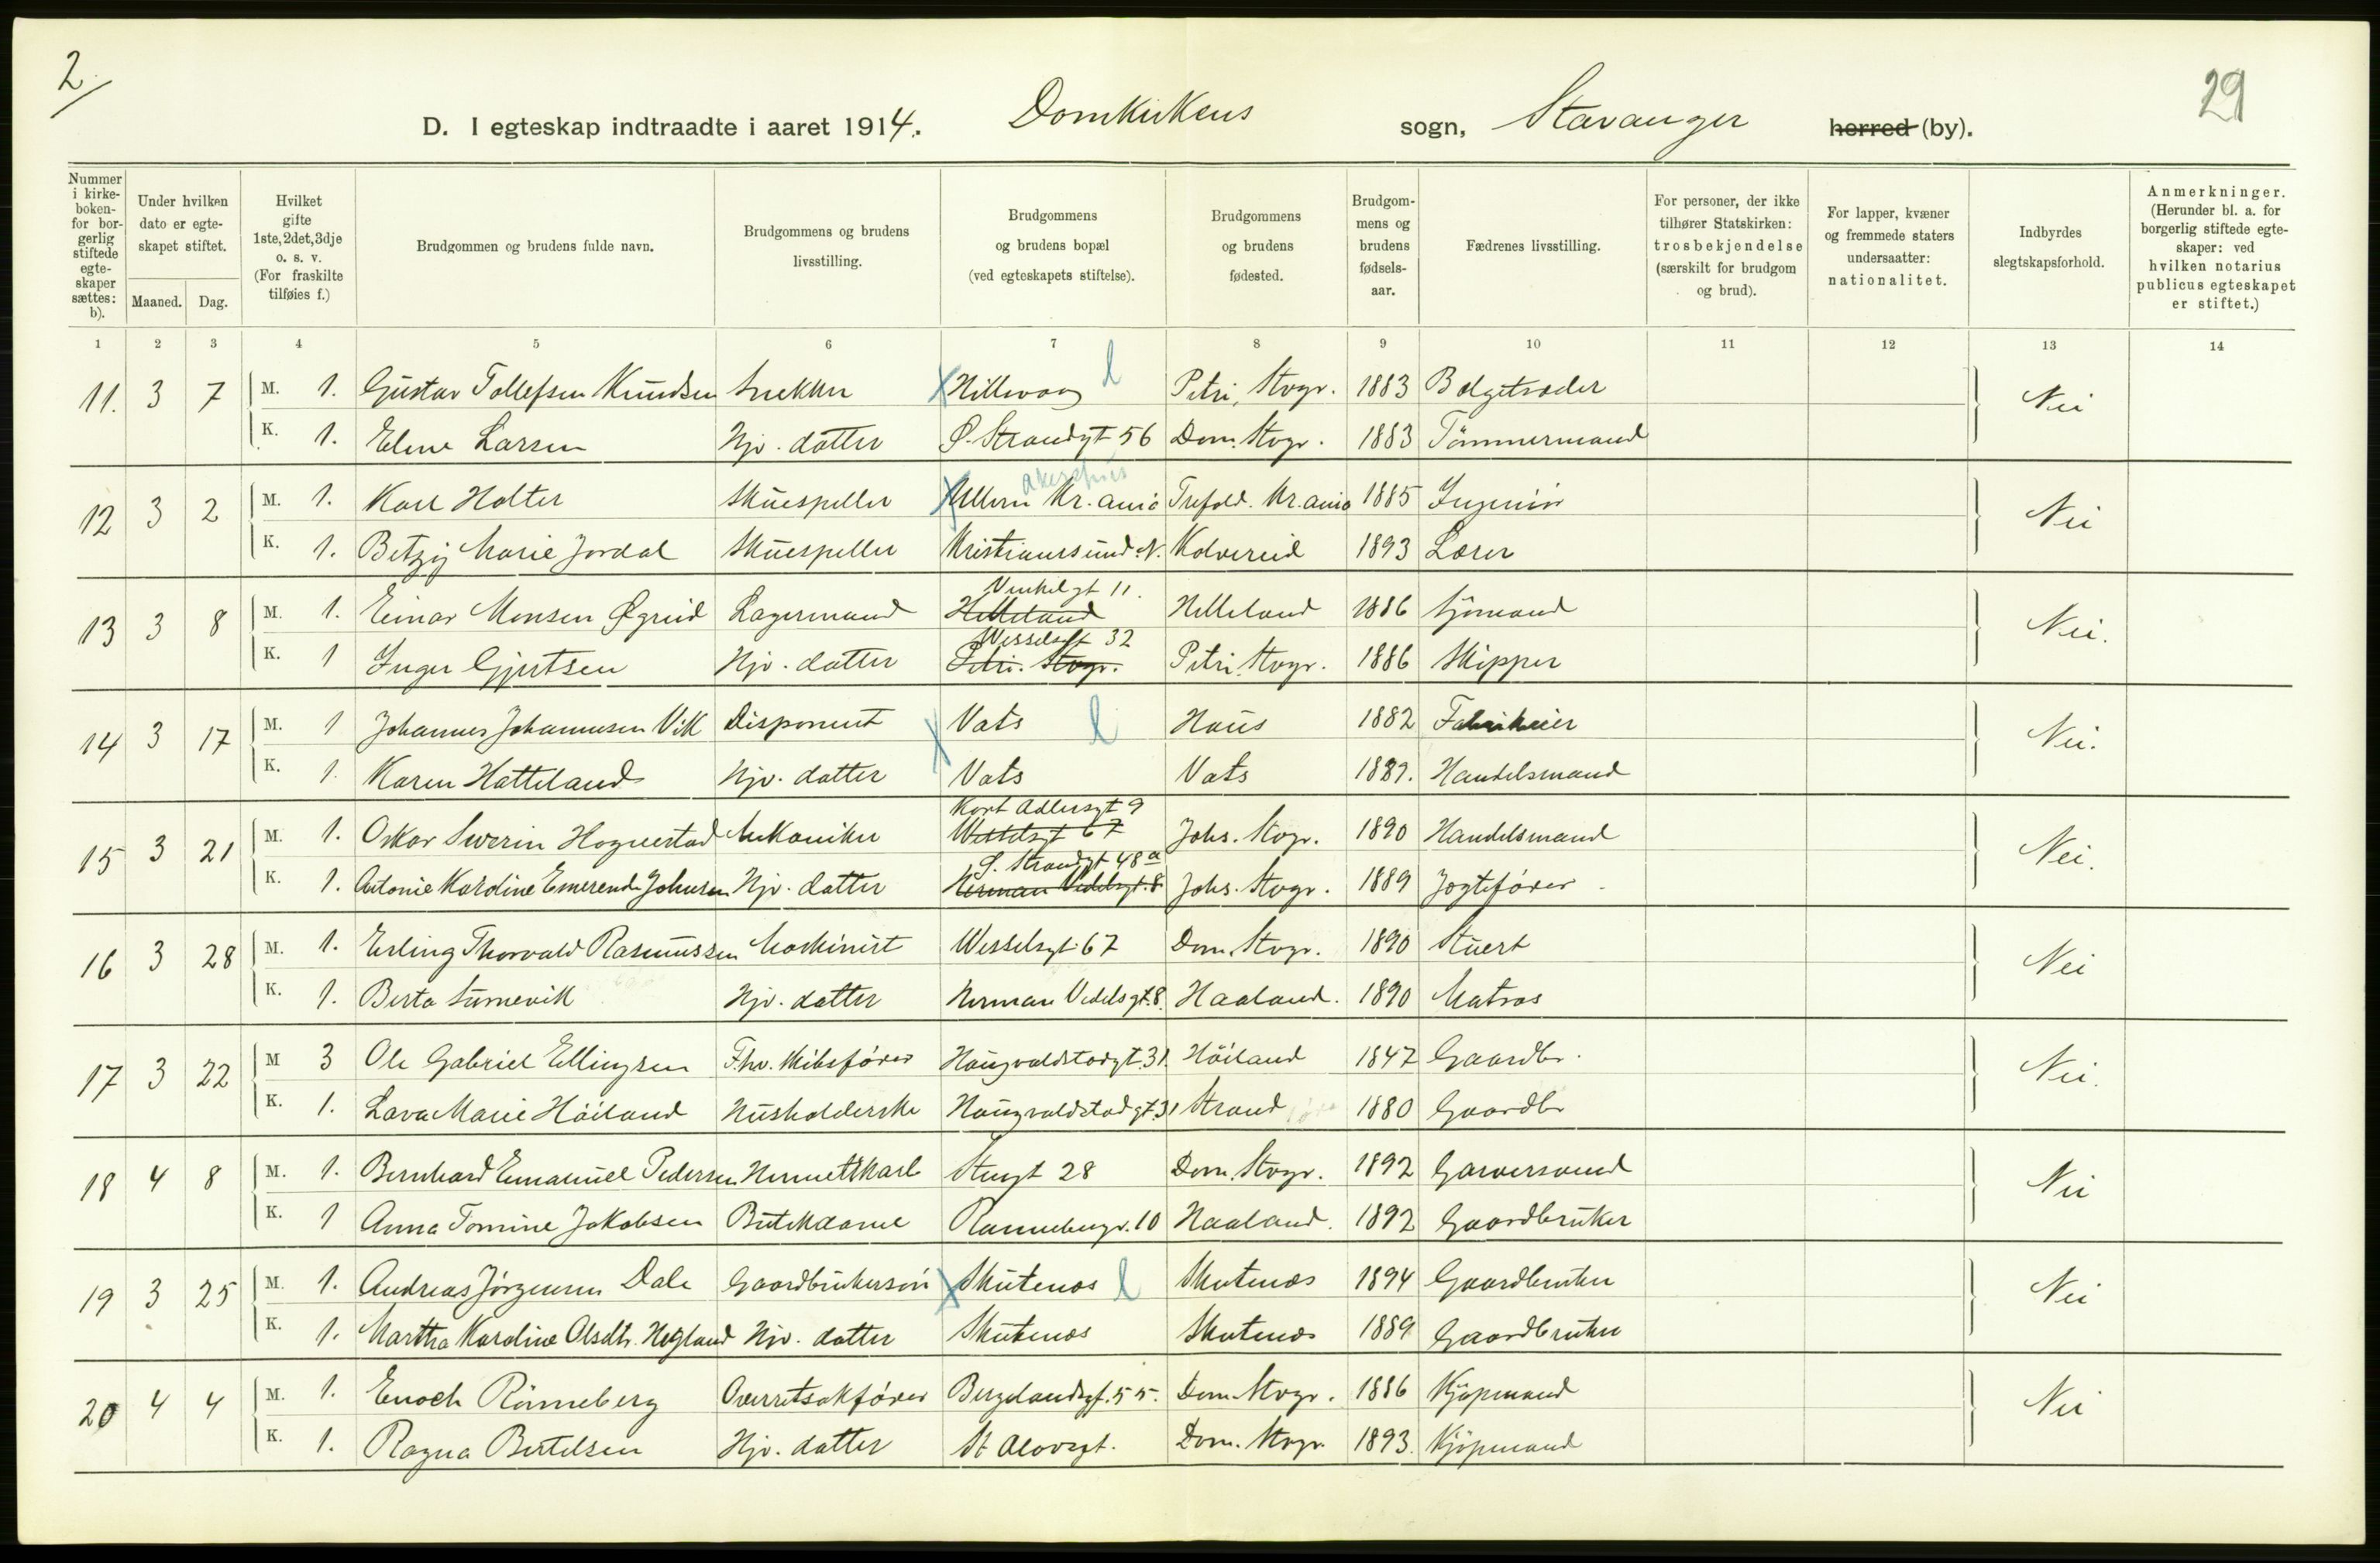 2
29
D. I egteskap indtraadte i aaret 1914. Domkirkens sogn, Stavanger herred (by).
Nummer i kirkeboken- for borgerlig stiftede egteskaper sættes: b).
Under hvilken dato er egteskapet stiftet.
Maaned. Dag.
Hvilket gifte 1ste, 2det, 3dje o. s. v. (For fraskilte tilføies f.)
Brudgommen og brudens fulde navn.
Brudgommens og brudens livsstilling.
Brudgommens og brudens bopæl (ved egteskapets stiftelse).
Brudgommens og brudens fødested.
Brudgommens og brudens fødselsaar.
Fædrenes livsstilling.
For personer, der ikke tilhører Statskirken: trosbekjendelse (særskilt for brudgom og brud).
For lapper, kvæner og fremmede staters undersaatter: nationalitet.
Indbyrdes slegtskapsforhold.
Anmerkninger. (Herunder bl. a. for borgerlig stiftede egteskaper: ved hvilken notarius publicus egteskapet er stiftet.)
1 2 3 4 5 6 7 8 9 10 11 12 13 14
11. 3 7 M. 1. Gustav Tollefsen Knudsen Snekker Hillevaag Petri, Stvgr. 1883 Nei
K. 1. Elene Larsen Hjv. datter Ø. Strandgt 56 Dom. Stvgr. 1883 Tømmermand
Akershus
12 3 2 M. 1. Karl Holter Skuespiller Ullern Kr.ania Trefold. Kr.ania 1885 Ingeniør Nei
K. 1. Betzy Marie Jordal Skuespiller Kristianssund N. Kolvereid 1893 Lærer
Vinkelgt 11.
13 3 8 M. 1. Einar Monsen Øgreid Lagermand Helleland Helleland 1886 Sjømand Nei.
Wesselsgt 32
K. 1 Inger Gjertsen Hjv. datter Petri. Stvgr. Petri Stvgr. 1886 Skipper
14 3 17 M. 1 Johannes Johannesen Vik Disponent Vats Haus 1882 Fabrikeier Nei.
K. 1. Karen Hatteland Hjv. datter Vats Vats 1887. Handelsmand
Kort Adlersgt 9
15 3 21 M. 1. Oskar Severin Hognestad Mekaniker Wesselsgt 67 Johs. Stvgr. 1890 Handelsmand Nei.
S. Strandgt 48a
K. 1. Antonie Karoline Emerende Johnsen Hjv. datter Herman Vedelsgt. 8 Johs. Stvgr. 1889 Jagtefører
16 3 28 M. 1. Erling Thorvald Rasmussen Maskinist Wesselsgt 67 Dom. Stvgr. 1890 Stuert Nei
K. 1. Berta Sunnevik Hjv. datter Herman Vedelsgt. 8. Haaland. 1890 Matros
17 3 22 M 3 Ole Gabriel Ellingsen Fhv. Skibsfører Haugvaldstadgt. 31. Höiland 1847 Gaardbr. Nei.
K. 1. Lava Marie Höiland Husholderske Haugvaldstadgt. 31 Strand 1880 Gaardbr
18 4 8 M. 1. Bernhard Emanuel Pedersen Hermetikarb Stengt 28 Dom. Stvgr. 1892 Garversvend Nei
K. 1 Anna Tomine Jakobsen Butikdame Ranneberggt. 10 Haaland. 1892 Gaardbruker
19 3 25 M. 1. Andreas Jörgensen Dale Gaardbrukersön Skutenes Skutenes 1894 Gaardbruker Nei
K. 1. Martha Karoline Olsdtr. Hegland Hjv. datter Skutenes Skutenes 1889 Gaardbruker
20 4 4 M. 1. Enoch Rönneberg Overretsakfører Bergelandsgt. 55. Dom. Stvgr. 1886 Kjøpmand Nei
K. 1. Ragna Bertelsen Hjv. datter St Olavsgt. Dom. Stvgr. 1893. Kjöpmand